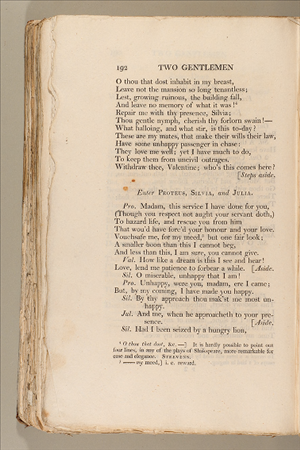 192 TWO GENTLEMEN
O thou that dost inhabit in my breast,
Leave not the mansion so long tenantless;
Lest, growing ruinous, the building fall,
And leave no memory of what it was!¹
Repair me with thy presence, Silvia;
Thou gentle nymph, cherish thy forlorn swain!—
What halloing, and what stir, is this to-day?
These are my mates, that make their wills their law,
Have some unhappy passenger in chase:
They love me well; yet I have much to do,
To keep them from uncivil outrages.
Withdraw thee, Valentine; who's this comes here?
[Steps aside.
Enter PROTEUS, SILVIA, and JULIA.
Pro. Madam, this service I have done for you,
(Though you respect not aught your servant doth,)
To hazard life, and rescue you from him
That wou'd have forc'd your honour and your love.
Vouchsafe me, for my meed,² but one fair look;
A smaller boon than this I cannot beg,
And less than this, I am sure, you cannot give.
Val. How like a dream is this I see and hear!
Love, lend me patience to forbear a while. [Aside.
Sil. O miserable, unhappy that I am!
Pro. Unhappy, were you, madam, ere I came;
But, by my coming, I have made you happy.
Sil. By thy approach thou mak'st me most un-
happy.
Jul. And me, when he approacheth to your pre-
sence. [Aside.
Sil. Had I been seized by a hungry lion,
¹ O thou that dost, &c.—] It is hardly possible to point out
four lines, in any of the plays of Shakspeare, more remarkable for
ease and elegance. STEEVENS.
² —— my meed,] i. e. reward.